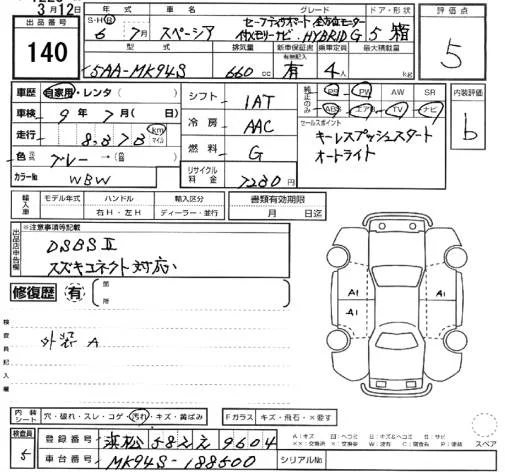 3月12日
出品番号
140
年式
S・H・R
6年 7月
グレード
セーフティサポート 全方位モニター
スペーシア メモリーナビ HYBRID G
ドア・形状
5 箱
型式
5AA-MK94S
排気量
660 cc
新車保証書
有無記入
有
乗車定員
4人
最大積載量
kg
評価点
5
内装評価
b
車歴
自家用・レンタ( )
車検
9年 7月( 日)
走行
8,878 km マイル
色
グレー→(色 )
カラーNo
WBW
シフト
IAT
冷房
AAC
燃料
G
リサイクル料金
7280円
純正のみ
PS PW AW SR
ABS エアB TV ナビ
セールスポイント
キーレスプッシュスタート
オートライト
輸入車
モデル年式 ハンドル 輸入区分
右H・左H ディーラー・並行
書類有効期限
月 日迄
出品店申告欄
※注意事項等記載
DSBSⅡ
スズキコネクト対応
修復歴 有
箇所
検査員記入欄
外装 A
A1 A1
内装シート
穴・破れ・スレ・コゲ・汚れ・キズ・黄ばみ
Fガラス キズ・飛石・×要す
スペア
検査員
5
登録番号
浜松 582 え 9604
車台番号
MK94S-188500
シリアルNo